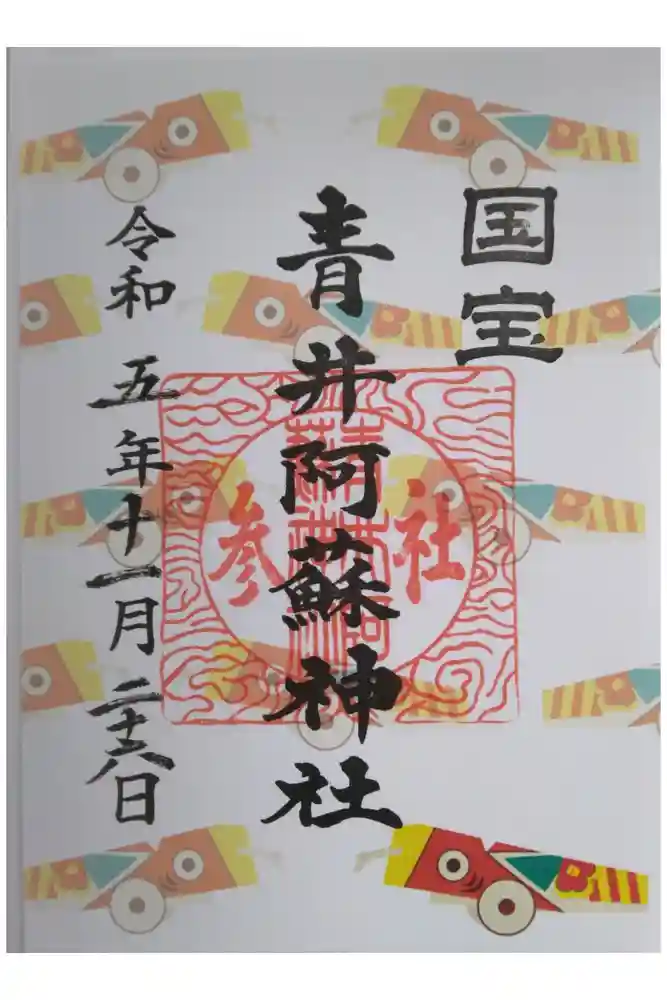 国宝
青井阿蘇神社
社参
令和五年十一月二十六日